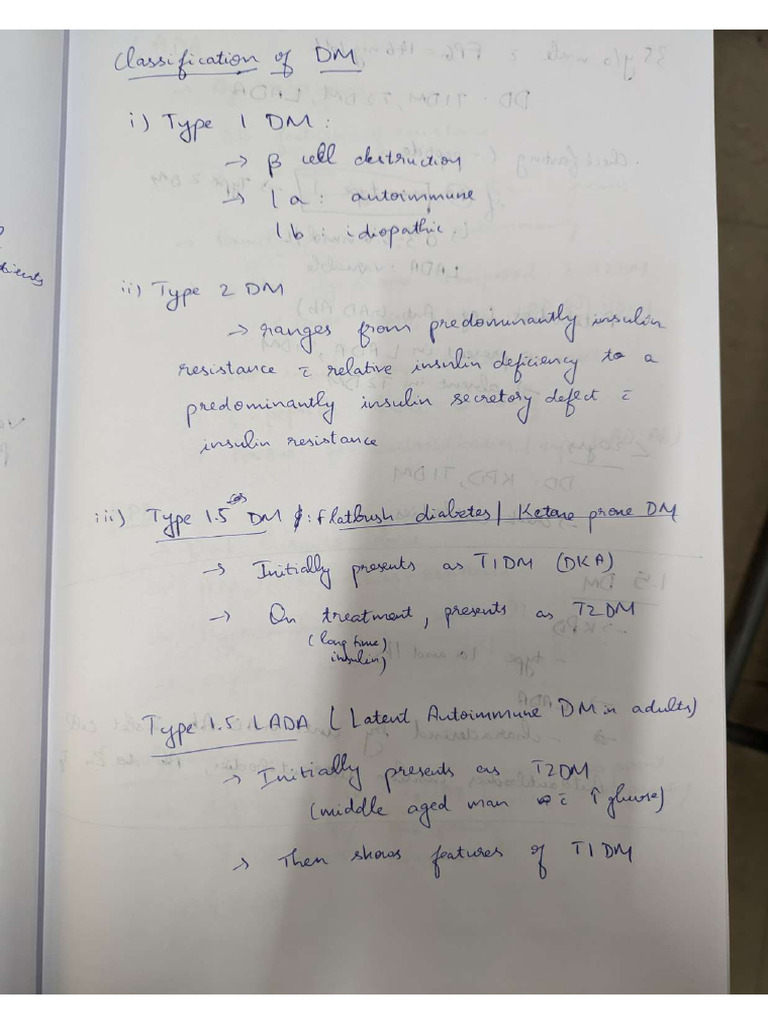 Classification of DM
i) Type 1 DM:
→ β cell destruction
→ 1a: autoimmune
1b: idiopathic
ii) Type 2 DM
→ ranges from predominantly insulin
resistance c̄ relative insulin deficiency to a
predominantly insulin secretory defect c̄
insulin resistance
iii) Type 1.5 DM : Flatbush diabetes/ Ketone prone DM
→ Initially presents as T1DM (DKA)
→ On treatment, presents as T2DM
(long time
insulin)
Type 1.5 LADA (Latent Autoimmune DM in adults)
→ Initially presents as T2DM
(middle aged man c̄ ↑ glucose)
→ Then shows features of T1DM